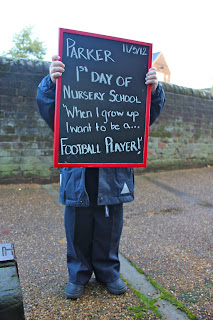 PARKER 11/9/12
1st DAY OF
NURSERY SCHOOL
"WHEN I GROW UP
I WANT TO BE A...
FOOTBALL PLAYER!"